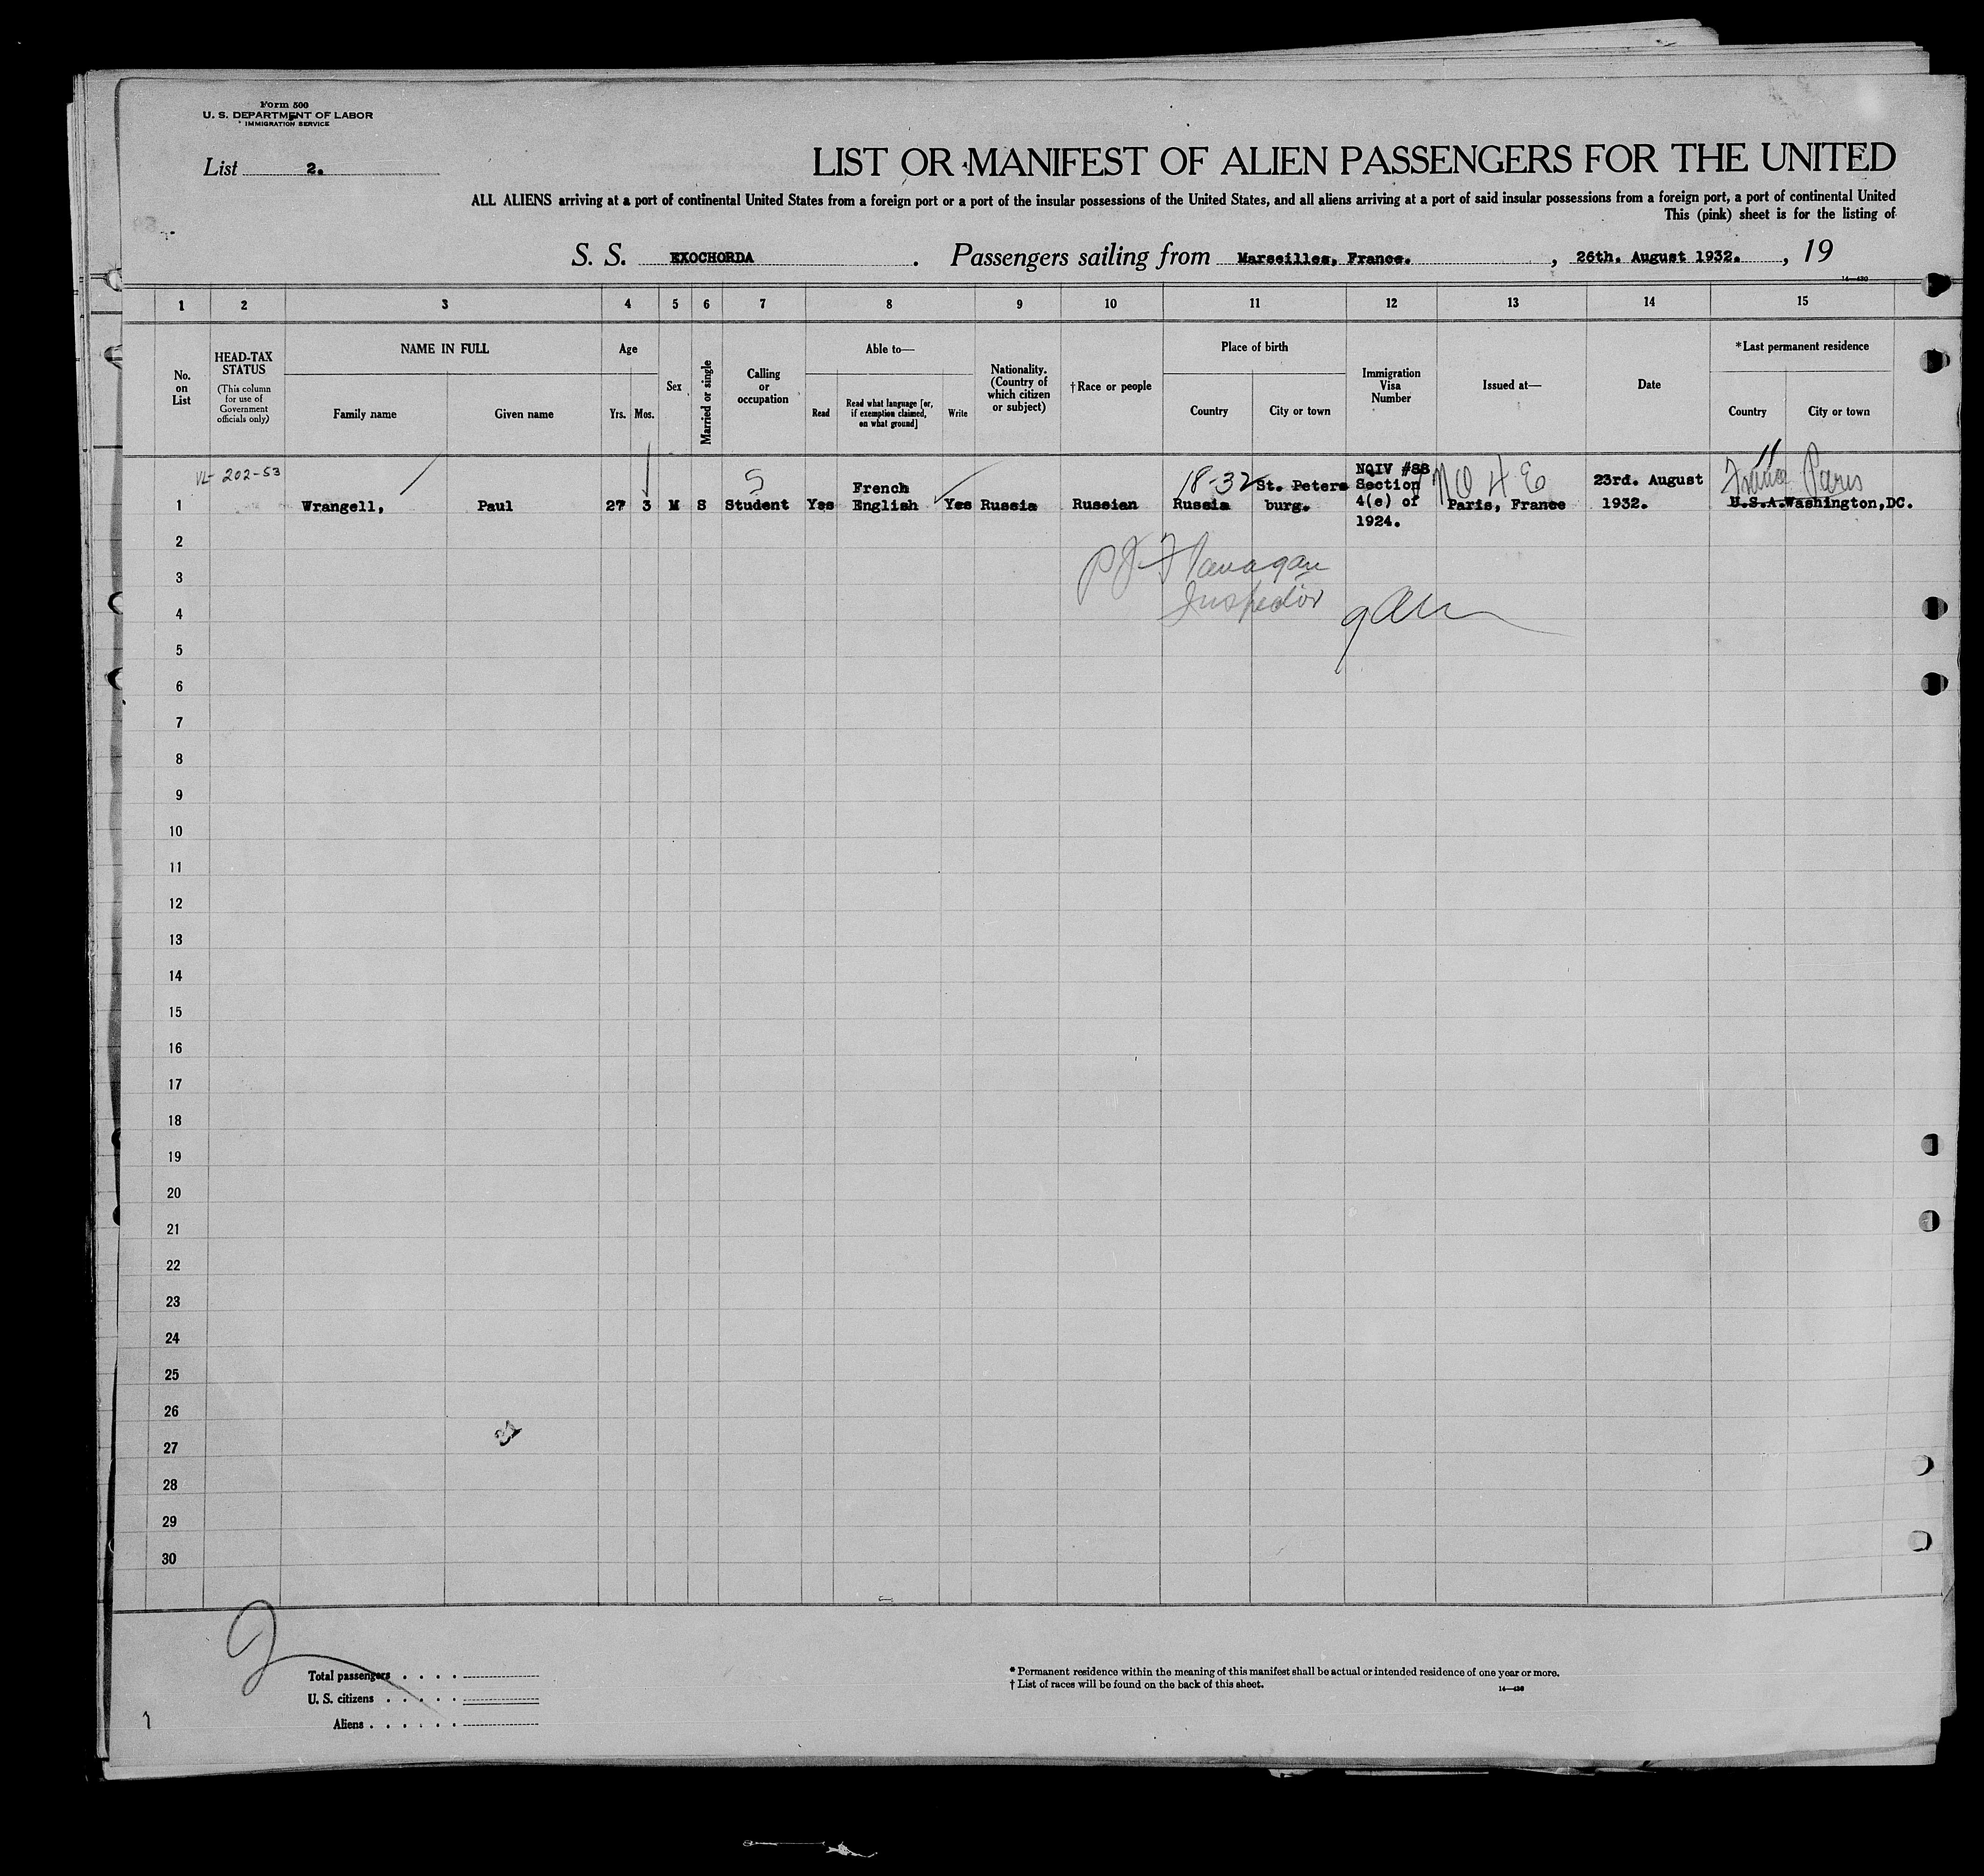 Form 500
U. S. DEPARTMENT OF LABOR
IMMIGRATION SERVICE
List 2.
LIST OR MANIFEST OF ALIEN PASSENGERS FOR THE UNITED
ALL ALIENS arriving at a port of continental United States from a foreign port or a port of the insular possessions of the United States, and all aliens arriving at a port of said insular possessions from a foreign port, a port of continental United
This (pink) sheet is for the listing of
S. S. EXOCHORDA . Passengers sailing from Marseilles, France. , 26th. August 1932. , 19
14—430
1 2 3 4 5 6 7 8 9 10 11 12 13 14 15
No. on List
HEAD-TAX STATUS
(This column for use of Government officials only)
NAME IN FULL
Family name
Given name
Age
Yrs.
Mos.
Sex
Married or single
Calling or occupation
Able to—
Read
Read what language [or, if exemption claimed, on what ground]
Write
Nationality. (Country of which citizen or subject)
†Race or people
Place of birth
Country
City or town
Immigration Visa Number
Issued at—
Date
*Last permanent residence
Country
City or town
202-53
5
18-32
NO 4 E
France Paris
1 Wrangell, Paul 27 3 M S Student Yes French English Yes Russia Russian Russia St. Petersburg. NQIV #88 Section 4(e) of 1924. Paris, France 23rd. August 1932. U.S.A. Washington,DC.
P J Flanagan
Inspector
2
3
4
5
6
7
8
9
10
11
12
13
14
15
16
17
18
19
20
21
22
23
24
25
26
27
28
29
30
2
Total passengers . . . .
U. S. citizens . . . . .
Aliens . . . . . .
* Permanent residence within the meaning of this manifest shall be actual or intended residence of one year or more.
† List of races will be found on the back of this sheet.
14—430